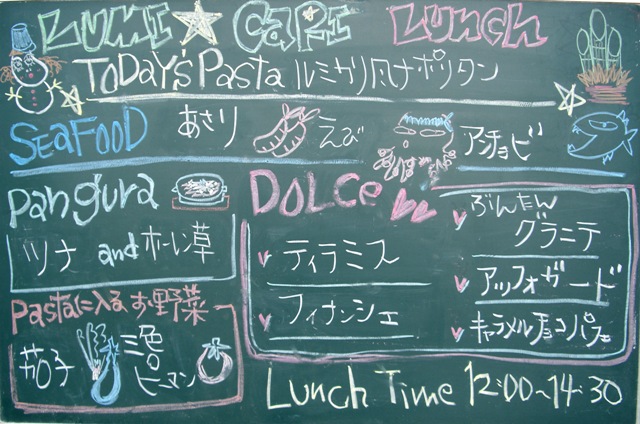 LUMI☆CAPI LUNCH
TODAY'S Pasta ルミカリ風ナポリタン
SEAFOOD あさり えび アンチョビ
Pangura
ツナ and ホーレン草
Pastaに入るお野菜
茄子 三色ピーマン
DOLCE
ティラミス
フィナンシェ
ぶんたん
グラニテ
アッフォガード
キャラメルチョコパフェ
Lunch Time 12:00～14:30